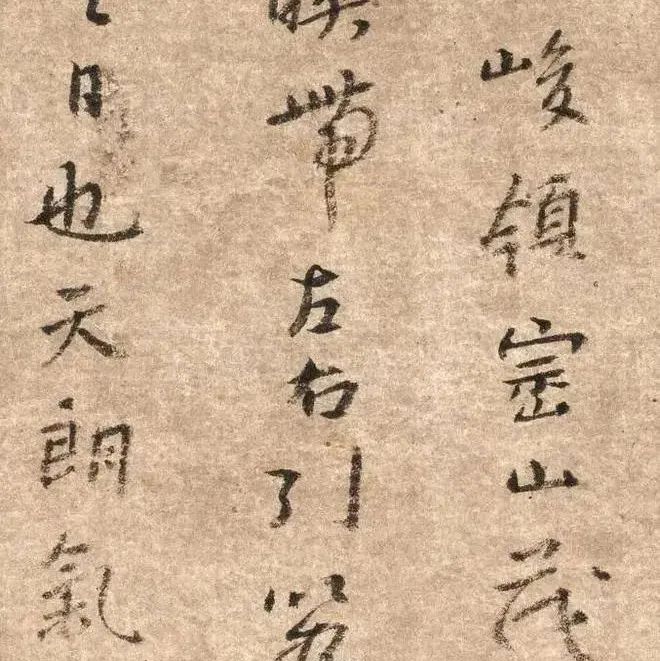 峻領崇山茂
映帶左右引以
日也天朗氣